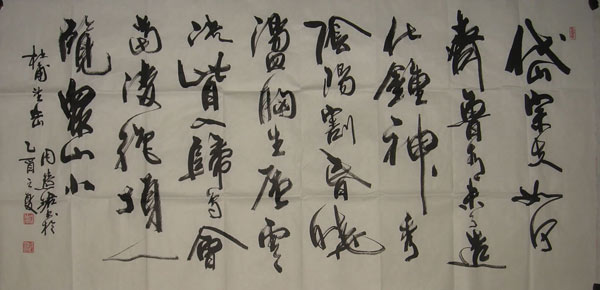 岱宗夫如何
齊魯青未了造
化鍾神秀
陰陽割昏曉
盪胸生層雲
決眥入歸鳥會
當凌絕頂一
覽眾山小
杜甫望岳
周书於
乙酉之夏